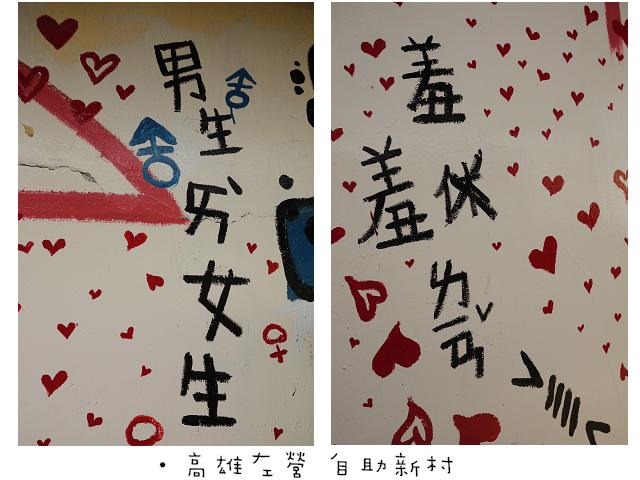 男生ㄞˋ女生
羞羞
ㄌㄧㄢˇ
•高雄左營 自助新村